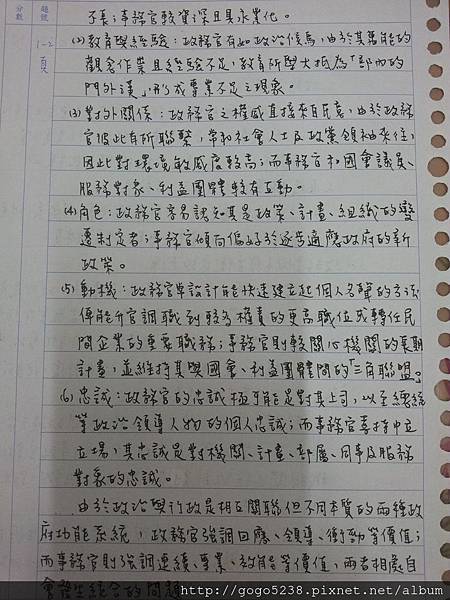 分數
題號
1-2
頁
不長;事務官較資深且具永業化。
(2)教育與經驗:政務官有如政治候鳥,由於其舊的
觀念作業且經驗不足,教育所學大抵為「部內的
門外漢」,形成專業不足之現象。
(3)對外關係:政務官之權威直接來自民意,由於政務
官彼此有所聯繫,常和社會人士及政黨領袖來往,
因此對環境敏感度較高;而事務官和國會議員、
服務對象、利益團體較有互動。
(4)角色:政務官容易認知其是政策、計畫、組織的變
遷制定者;事務官傾向偏好於逐步適應政府的新
政策。
(5)動機:政務官設計能快速建立起個人名聲的方法
俾能升官調職到較多權責的更高職位或轉任民
間企業的重要職務;事務官則較關心機關的長期
計畫,並維持其與國會、利益團體間的「三角聯盟」。
(6)忠誠:政務官的忠誠極可能是對其上司,以至總統
等政治領導人物的個人忠誠;而事務官秉持中立
立場,其忠誠是對機關、計畫、部屬、同事及服務
對象的忠誠。
由於政治與行政是相互關聯但不同本質的兩種政
府功能系統,政務官強調回應、領導、衝勁等價值;
而事務官則強調連續、專業、效能等價值,兩者相處自
會發生結合的問題
http://gogo5238.pixnet.net/album